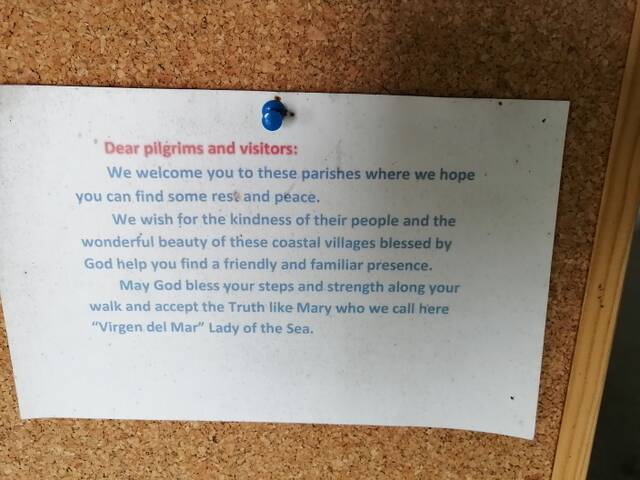 Dear pilgrims and visitors:
We welcome you to these parishes where we hope
you can find some rest and peace.
We wish for the kindness of their people and the
wonderful beauty of these coastal villages blessed by
God help you find a friendly and familiar presence.
May God bless your steps and strength along your
walk and accept the Truth like Mary who we call here
“Virgen del Mar” Lady of the Sea.